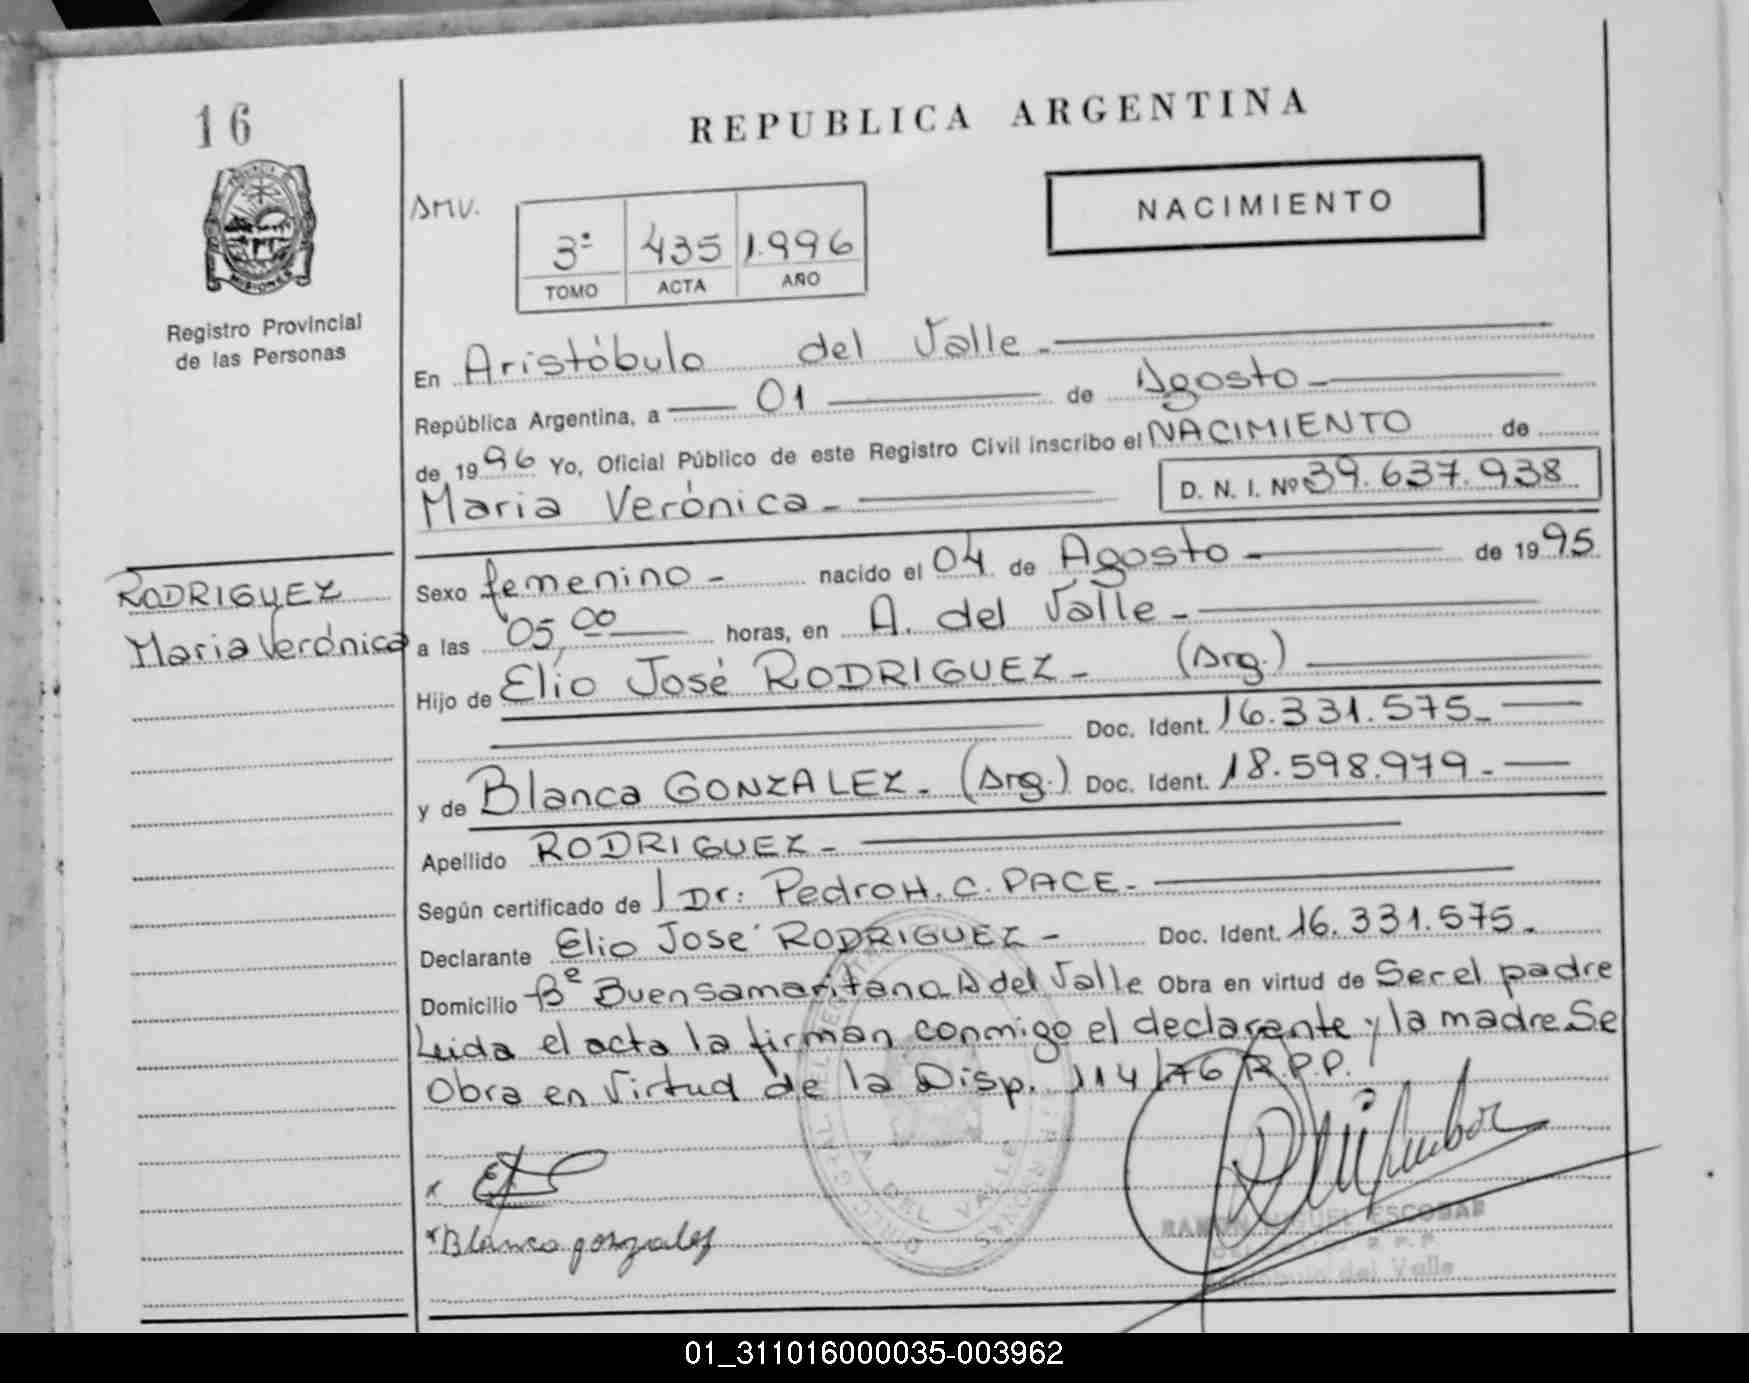 16
REPUBLICA ARGENTINA
NACIMIENTO
3º 435 1.996
TOMO ACTA AÑO
Registro Provincial
de las Personas
En Aristóbulo del Valle.-
República Argentina, a 01 de Agosto-
de 1996 Yo, Oficial Público de este Registro Civil inscribo el NACIMIENTO de
Maria Verónica-
D. N. I. Nº 39.637.938
RODRIGUEZ
Maria Verónica
Sexo femenino- nacido el 04 de Agosto- de 1995
a las 05,00 horas, en A. del Valle-
Hijo de Elio José RODRIGUEZ- (Arg.)
Doc. Ident. 16.331.575-
y de Blanca GONZALEZ. (Arg.) Doc. Ident. 18.598.979.-
Apellido RODRIGUEZ-
Según certificado de Dr: Pedro H. C. PACE-
Declarante Elio José RODRIGUEZ- Doc. Ident. 16.331.575.
Domicilio Bº Buensamaritano A del Valle Obra en virtud de Ser el padre
Leida el acta la firman conmigo el declarante y la madre Se
Obra en Virtud de la Disp. 114/76 R.P.P.
Blanca gonzalez
RAMON MIGUEL ESCOBAR
R.P.P.
del Valle
01_311016000035-003962